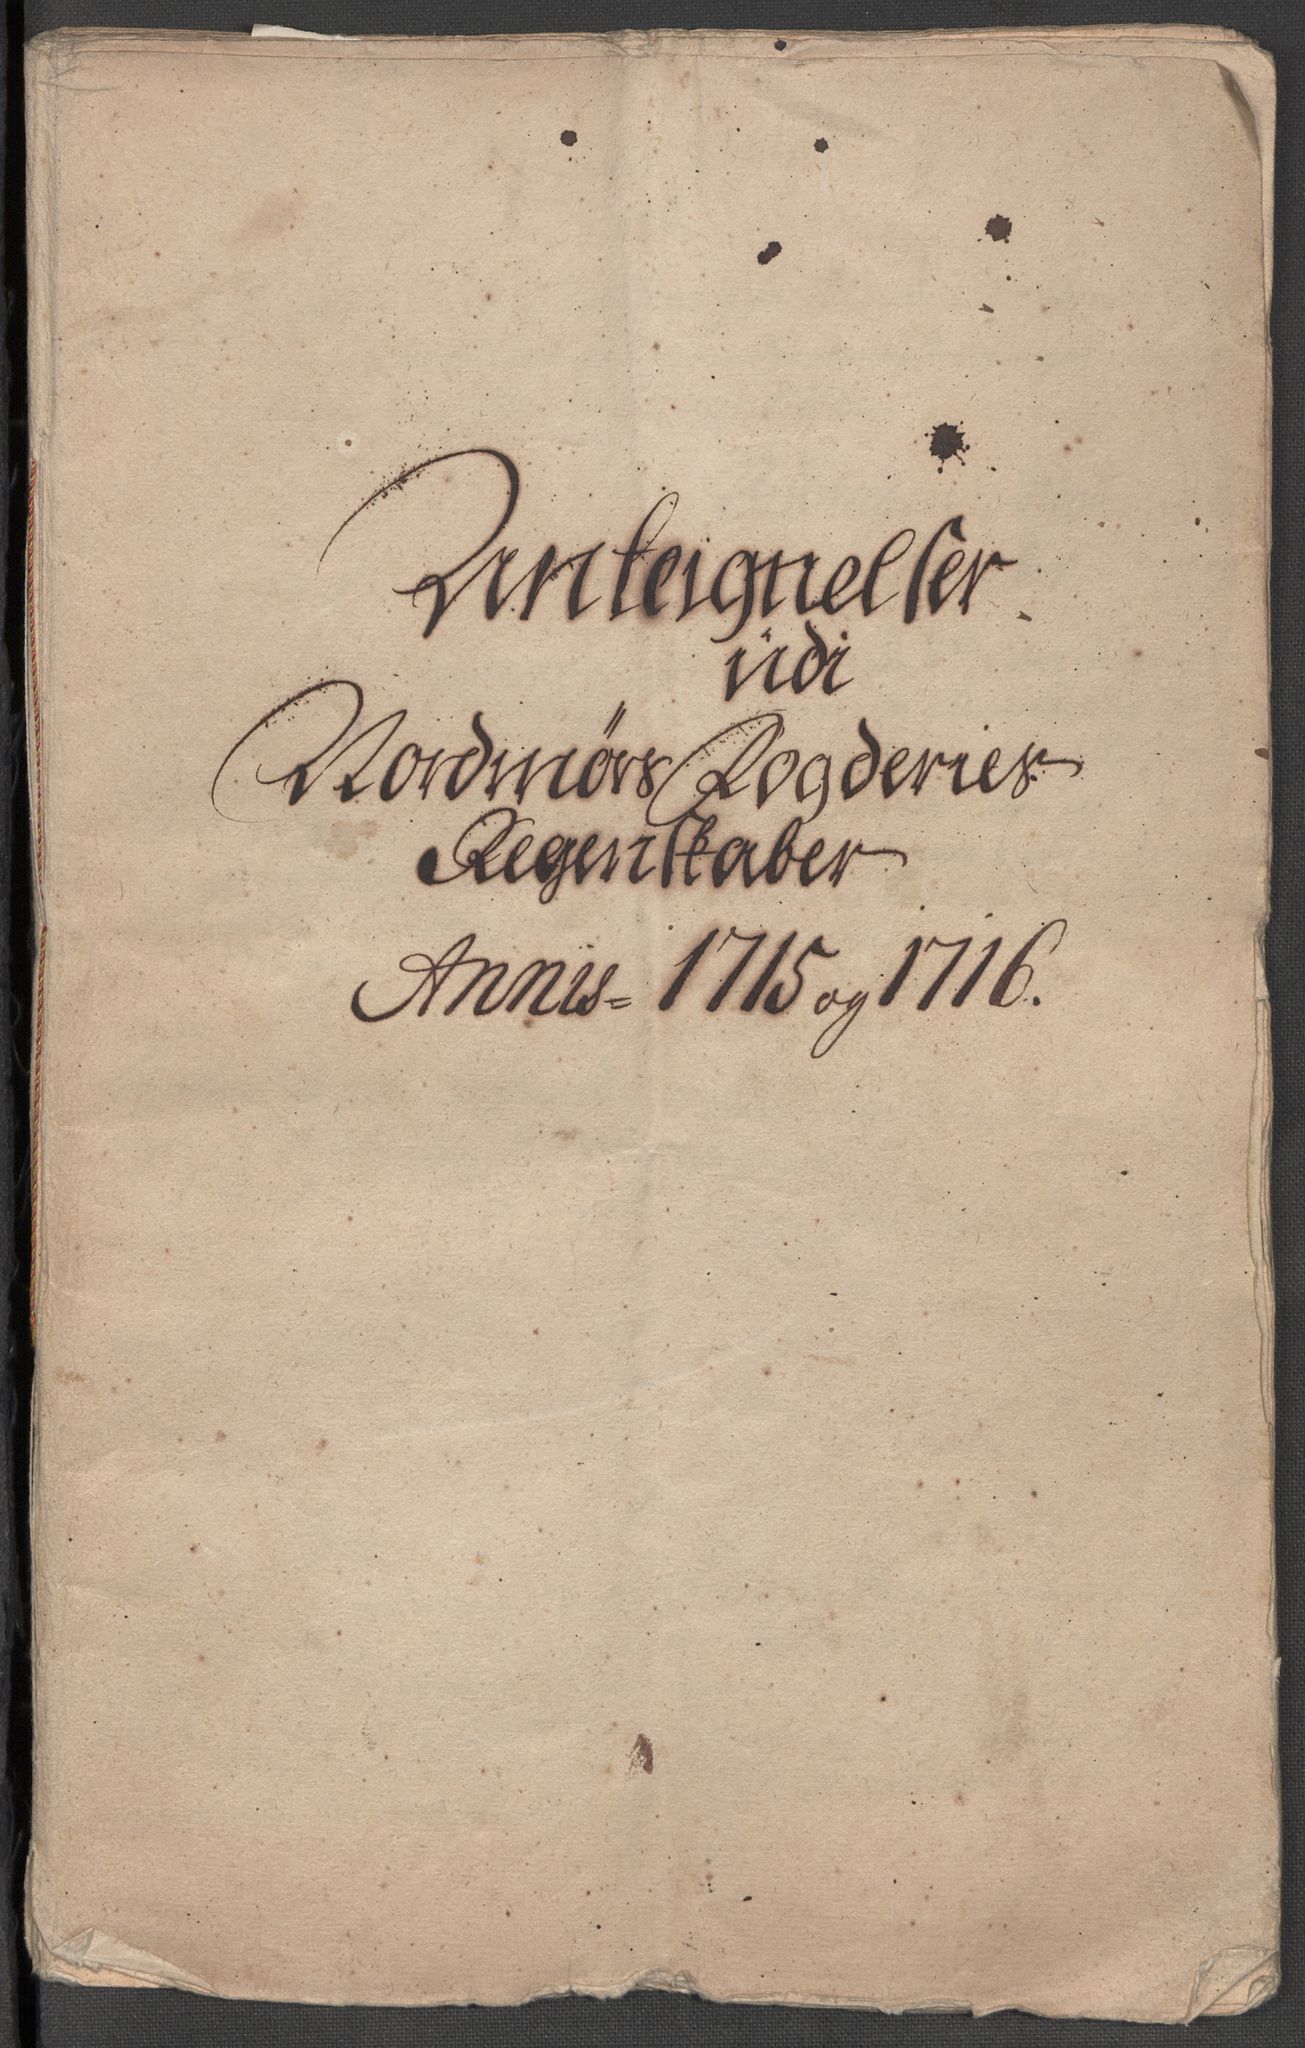 Anteignelser
udi
Nordmörs Fogderies
Regenskaber
Annis = 1715 og 1716.